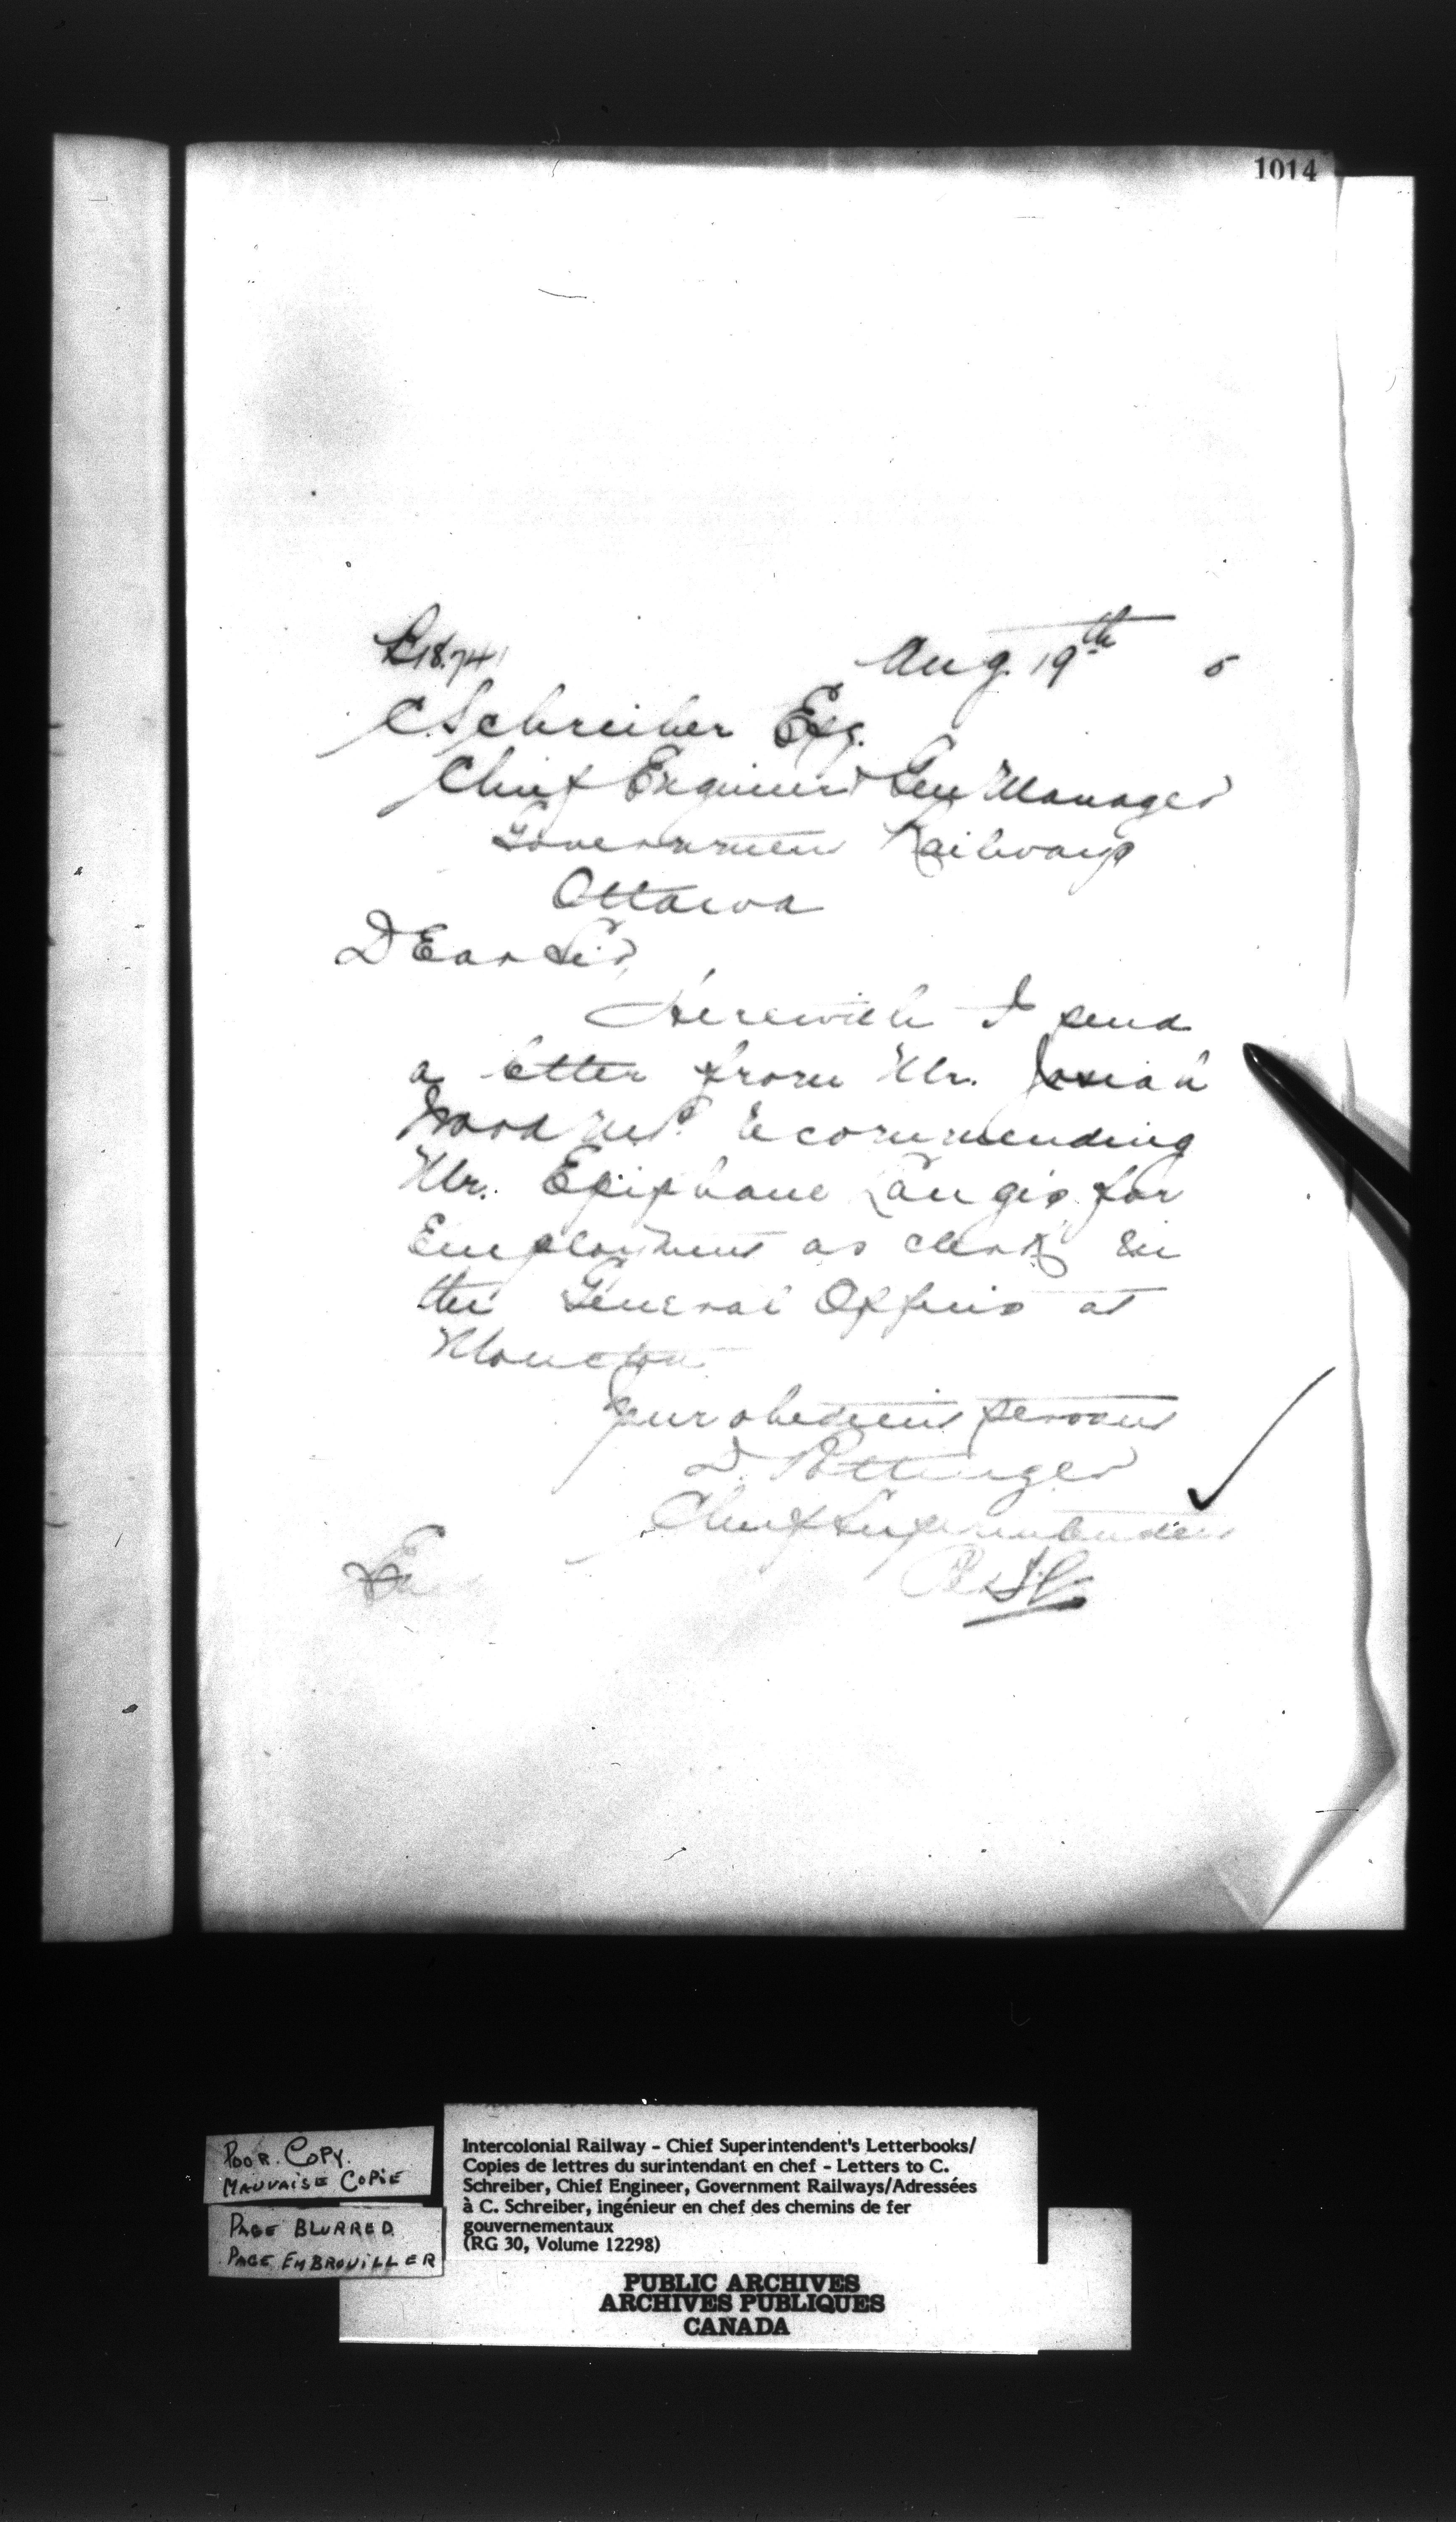 1014
L18.741
Aug. 19th 5
C. Schreiber Esq.
Chief Engineer & Gen Manager
Government Railways
Ottawa
Dear Sir,
Herewith I send
a letter from Mr. Josiah
Wood M.P. recommending
Mr. Epiphane Langis for
Employment as clerk in
the General Offices at
Moncton
Your obedient servant
D. Pottinger
Chief Superintendent
POOR. COPY.
MAUVAISE COPIE
PAGE BLURRED
PAGE EMBROUILLER
Intercolonial Railway - Chief Superintendent's Letterbooks/
Copies de lettres du surintendant en chef - Letters to C.
Schreiber, Chief Engineer, Government Railways/Adressées
à C. Schreiber, ingénieur en chef des chemins de fer
gouvernementaux
(RG 30, Volume 12298)
PUBLIC ARCHIVES
ARCHIVES PUBLIQUES
CANADA